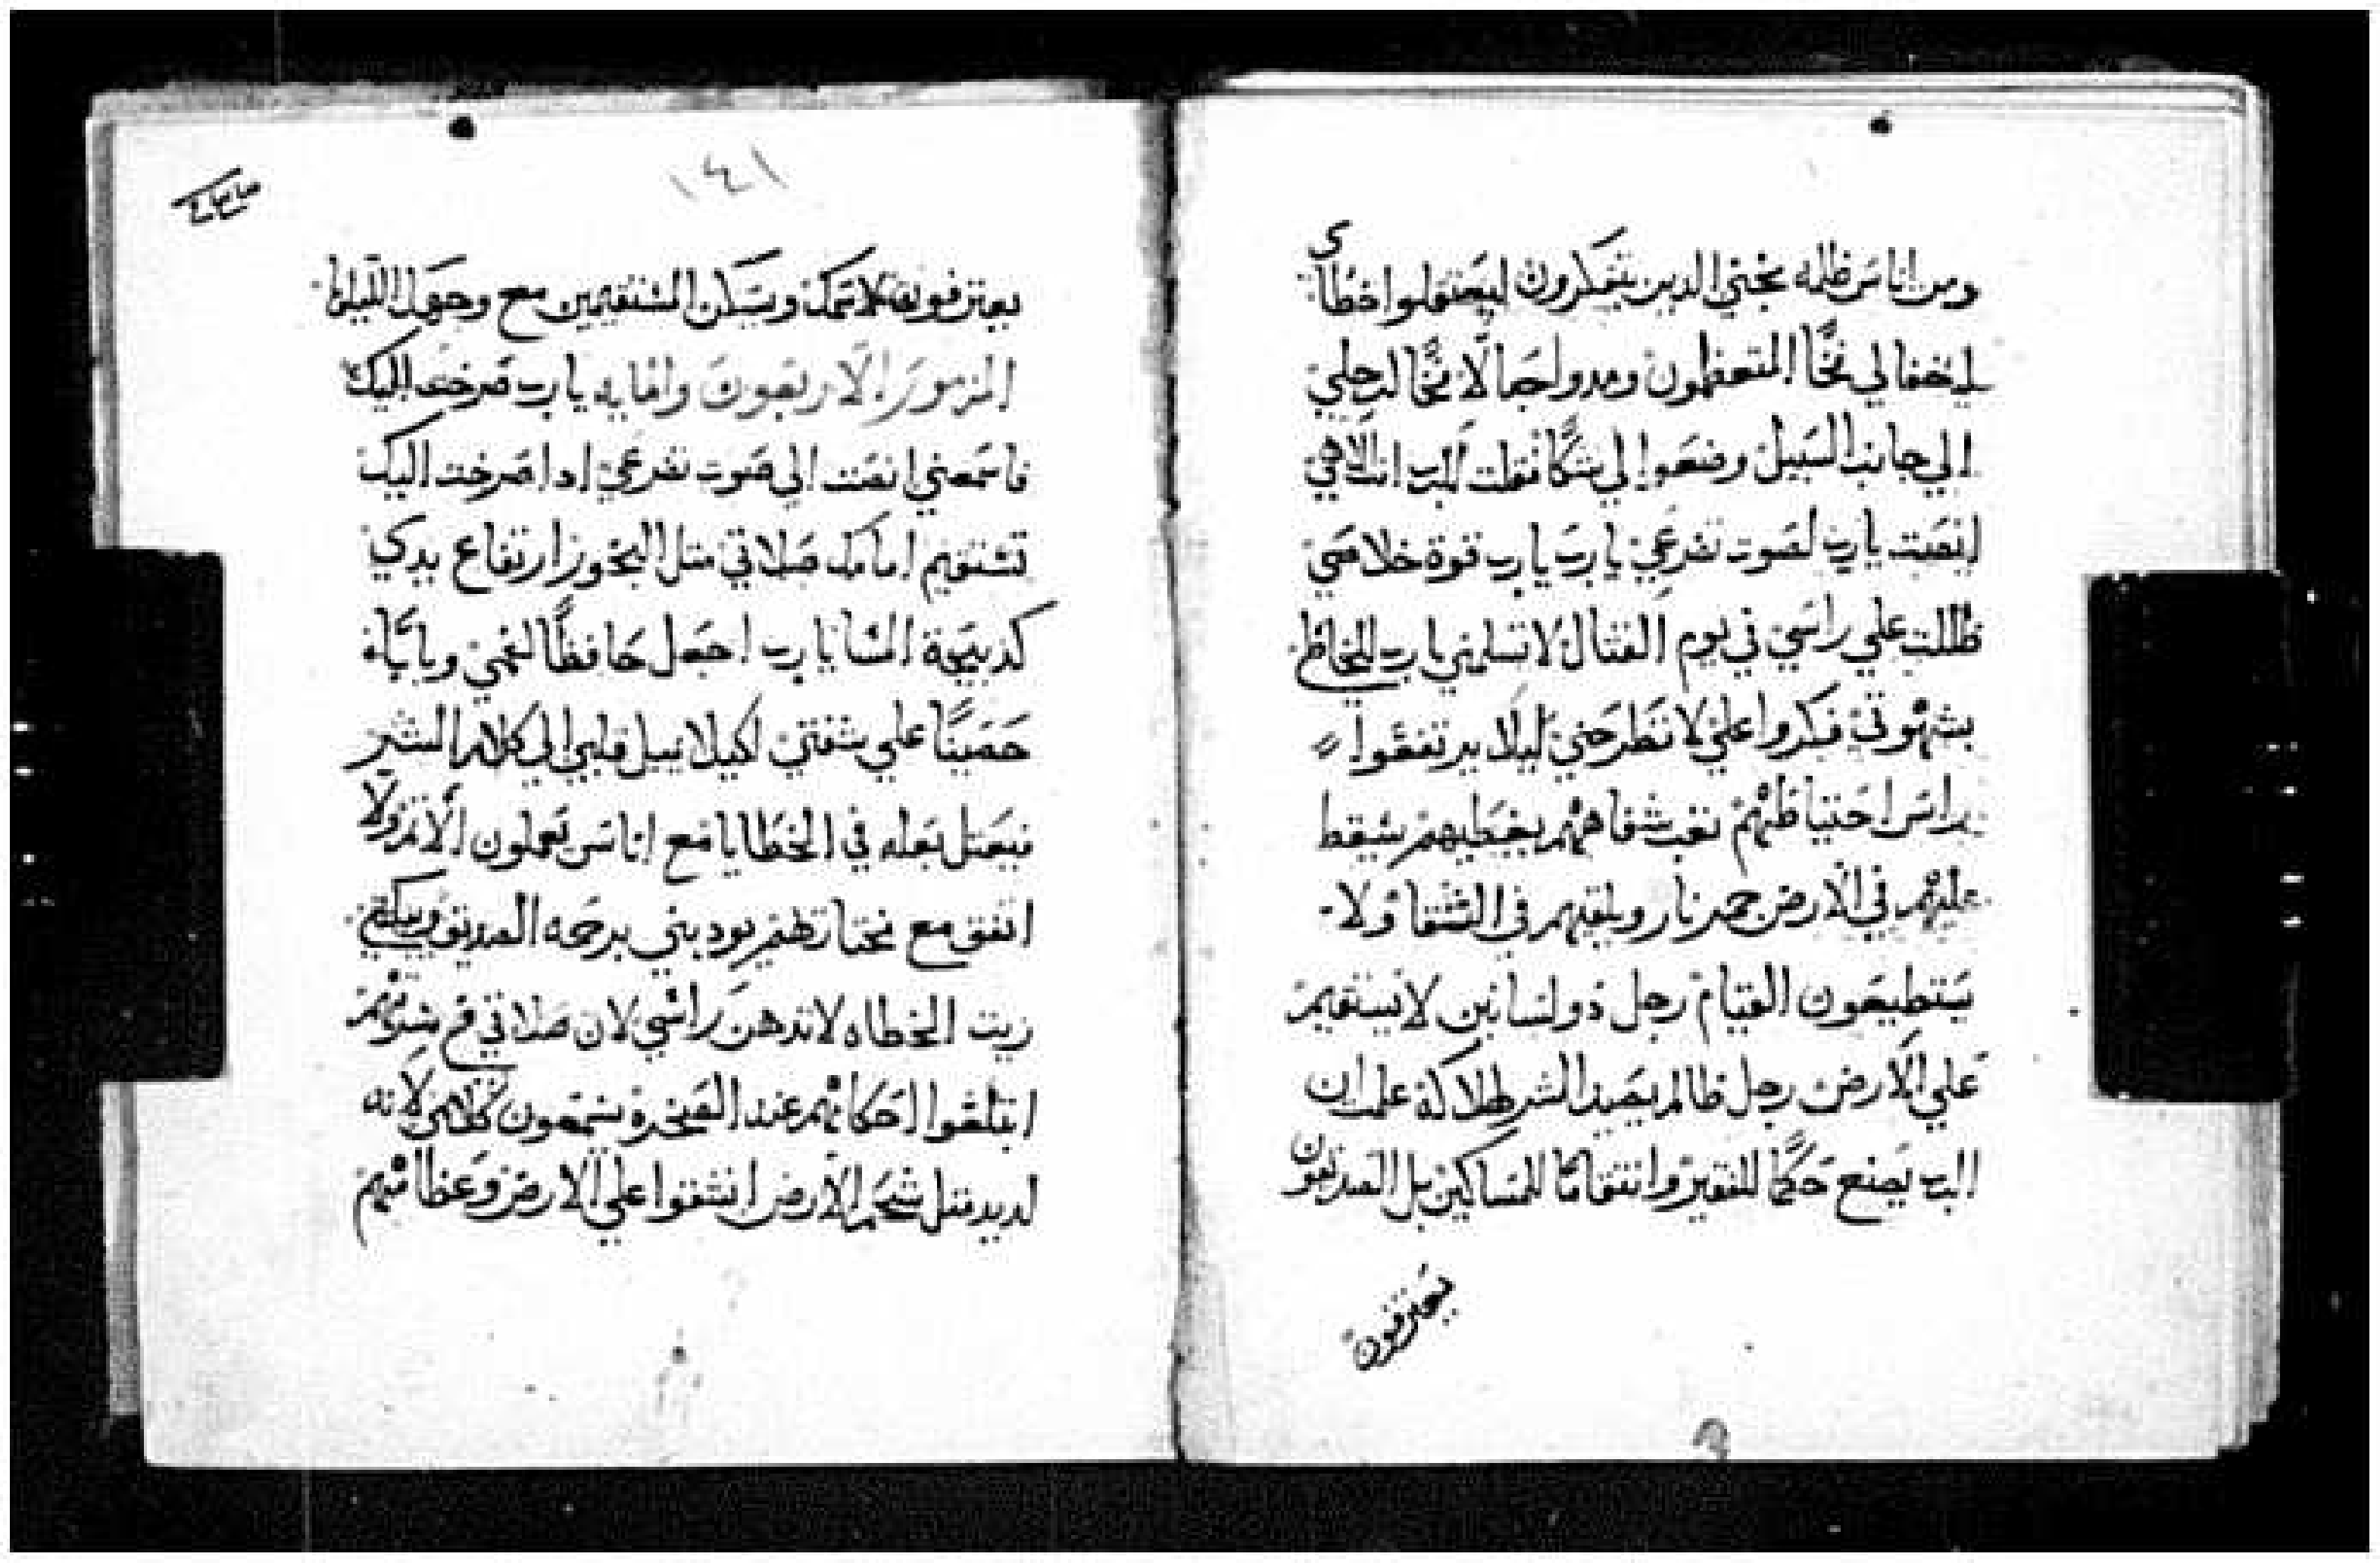 ومن اناس ظلمه نجني الدين يتفكرون ليعتقلوا خطاي
اخفا لي فخًا المتعظمون ومدوا حبالًا فخًا لرجلي
الي جانب السبيل وضعوا لي شكًا فقلت للرب انت الاهي
انصت يارب لصوت تضرعي يارب يارب قوة خلاصي
ظللت علي راسي في يوم القتال لا تسلمني يارب للخاطي
بشهوتي فكروا علي لا تطرحني ليلا يرتفعوا
راس احتياطهم تعب شفاههم يغطيهم يسقط
عليهم في الارض جمر نار ويلقيهم في الشقا ولا
يستطيعون القيام رجل دو لسانين لا يستقيم
علي الارض رجل ظالم يصيد الشر للهلاكه علمت ان
الرب يصنع حكمًا للفقير وانتقامًا للمساكين بل الصديقون
يعترفون
١٤١
يعترفون لاسمك ويسكن المستقيمين مع وجهك الليلويا
المزمور الاربعون وامايه يارب صرخت اليك
فاسمعني انصت الي صوت تضرعي ادا صرخت اليك
تستقيم امامك صلاتي متل البخور ارتفاع يدي
كدبيحة المسا يارب اجعل حافظًا لفمي وبابًا
حصينًا علي شفتي لكيلا يميل قلبي الي كلام الشر
فيعتل بعله في الخطايا مع اناس يعملون الاتم ولا
اتفق مع مختاريهم يودبني برحمه الصديق ويبكتني
زيت الخطاه لا تدهن راسي لان صلاتي في مسرتهم
ابتلعوا احكامهم عند الصخرة يسمعون كلامي لانه
لديد متل شحم الارض انشقوا علي الارض وعظامهم